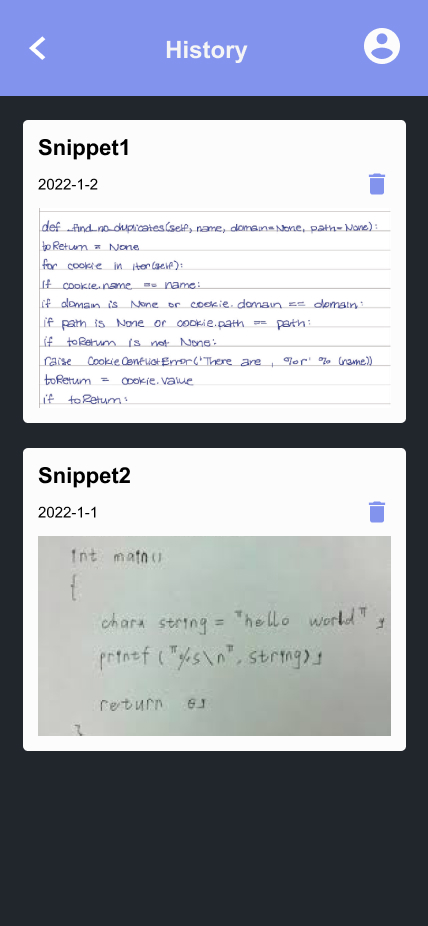 History
Snippet1
2022-1-2
def find_no_duplicates(self, name, domain=None, path=None):
toReturn = None
for cookie in iter(self):
if cookie.name == name:
if domain is None or cookie.domain == domain:
if path is None or cookie.path == path:
if toReturn is not None:
raise CookieConflictError('There are , %r' % (name))
toReturn = cookie.value
if toReturn:
Snippet2
2022-1-1
int main()
{
char* string = "hello world" ;
printf ("%s\n", string);
return 0;
}